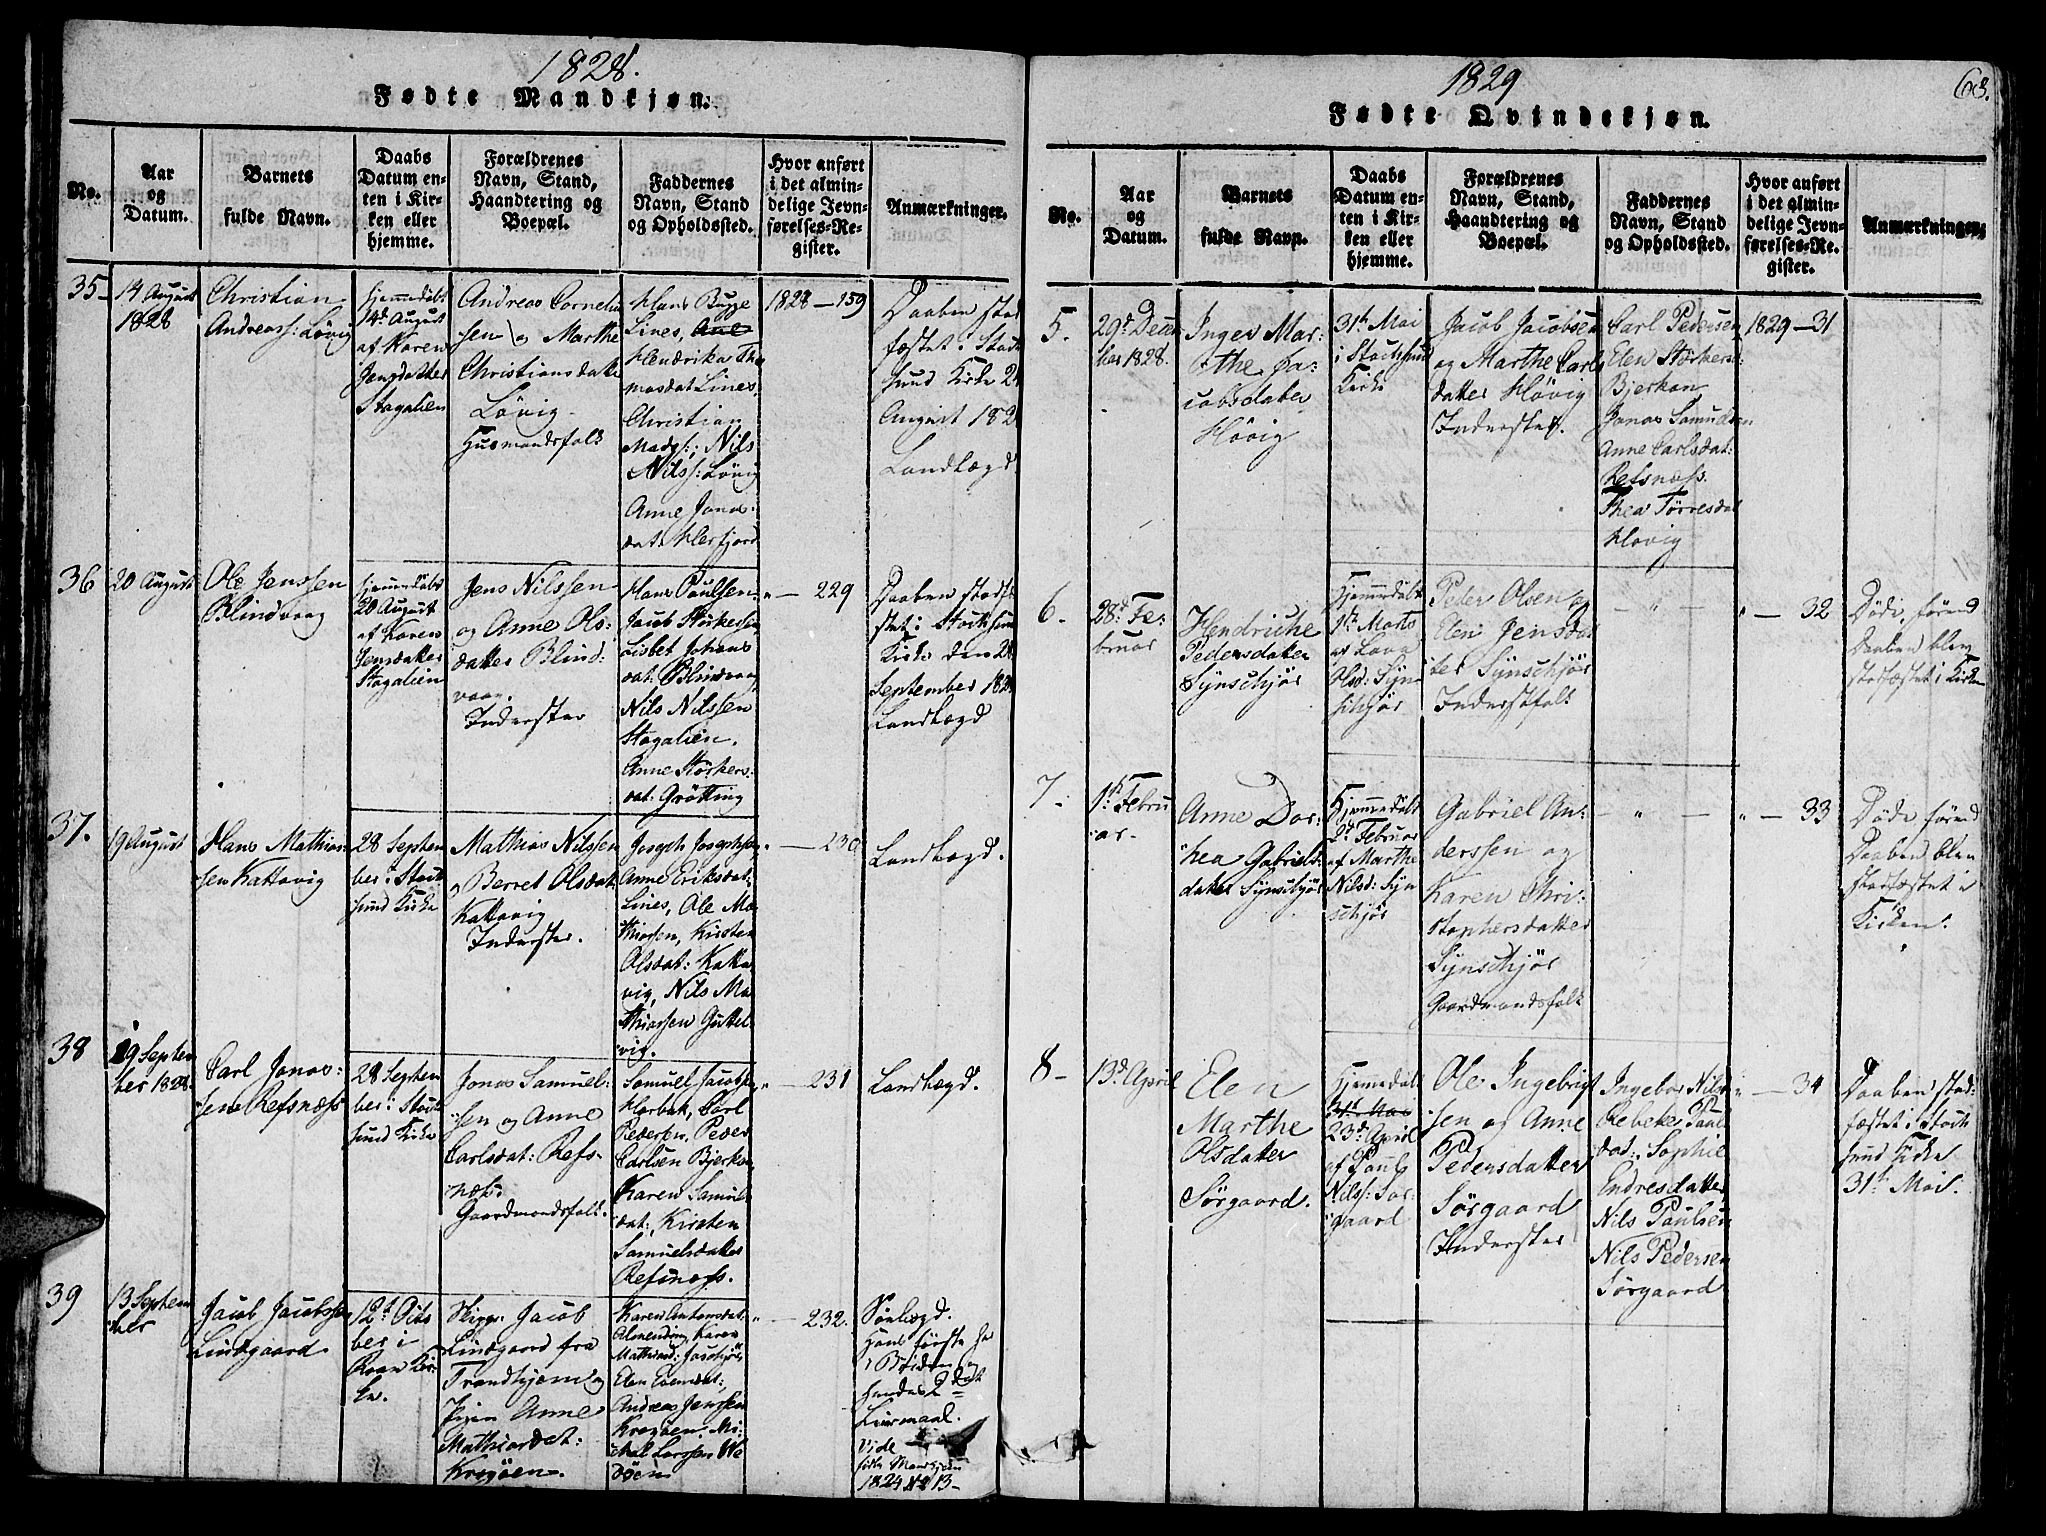 1828.
Fødte Mandkjøn.
No.
Aar
og
Datum.
Barnets
fulde Navn.
Daabs
Datum en-
ten i Kir-
ken eller
hjemme.
Forældrenes
Navn, Stand,
Haandtering og
Boepæl.
Faddernes
Navn, Stand
og Opholdssted.
Hvor anført
i det almin-
delige Jevn-
førelses-Re-
gister.
Anmærkninger.
35-
14 August
1828
Christian
Andreass: Lövig
Hjemmedöbt
14de August
af Karen
Jensdatter
Stagalien
Andreas Corneliu
sen og Marthe
Christiansdatter
Lövig
Huusmandsfolk
Hans Bugge
Lines, Ane
Hendrika Tho
masdat: Lines
Christian
Madss:, Nils
Nilss: Lövig
Anne Jonas:
dat: Herfjord
1828 - 159
Daaben stad
fæstet i Stoch
sund Kirke 24
August 182
Landlægd
36
20 August
Ole Jenssen
Blindvaag
Hjemmedöbt
20 August
af Karen
Jensdatter
Stagalien
Jens Nilssen
og Anne Ols:
datter Blind:
vaag.
Inderster
Hans Paulsen
Jacob Störkersen
Lisbet Johans
dat: Blindvaag
Nils Nilssen
Stagalien.
Anne Störkers:
dat: Grötting
" - 229
Daaben stadfæ
stet i Stocksund
Kirke den 28
September 182
Landlægd
37.
19 August
Hans Mathias:
sen Kattavig
28 Septem
ber i Stock
sund Kirke
Mathias Nilssen
og Berret Olsdat
Kattavig
Inderster.
Joseph Josephsen
Anne Eriksdat:
Lines, Ole Ma
thiassen, Kirsten
Olsdat: Katta
vig, Nils Ma
thiassen Guttel
vig.
" - 230
Landlægd.
38
19 Septem
ber 1828.
Carl Jonas:
sen Refsnæss
28 Septem
ber i Stock
sund Kirke
Jonas Samuel:
sen og Anne
Carlsdat: Refs-
næss.
Gaardmandsfolk.
Samuel Jacobsen
Harbak, Carl
Pedersen, Peder
Carlsen Bjerkan
Karen Samuels
dat:, Kirsten
Samuelsdatter
Refsnæss.
" - 231
Landlægd.
39
13 Septem
ber
Jacob Jacobssen
Lindgaard
12te Octo
ber i
Roan Kir-
ke.
Skipper Jacob
Lindgaard fra
Trondhjem og
Pigen Anne
Mathiasdat:
Kragöen.
Karen Antonsdat:
Almending, Karen
Mathiasd:
Elen Evensdat:,
Andreas Jenssen
Kragöen, Mi:
chal Larssen We
döen
" - 232.
Sölægd.
Hans förste
Hendes 2det
Leiermaal.
vide
födte Mandkjön
1824 No 13-
1829
63.
Fødte Qvindekjøn.
No.
Aar
og
Datum.
Barnets
fulde Navn.
Daabs
Datum en-
ten i Kir-
ken eller
hjemme.
Forældrenes
Navn, Stand,
Haandtering og
Boepæl.
Faddernes
Navn, Stand
og Opholdssted.
Hvor anført
i det almin-
delige Jevn-
førelses-Re-
gister.
Anmærkninger.
5.
29de Decem
ber 1828.
Inger Mar:
the Ja:
cobsdatter
Hövig
31te Mai
i Stocksund
Kirke
Jacob Jacobsen
og Marthe Carls
datter Hövig
Inderster.
Carl Pedersen
Elen Störkersd:
Bjerkan
Jonas Samuelsen
Anne Carlsdat:
Refsnæss.
Thea Törresdat
Hövig
1829 - 31
6.
28de Fe:
bruar
Hendriche
Pedersdatter
Synschjör
Hjemmedöbt
1te Marts
af Lava
Olsd: Syn
schjör
Peder Olsen og
Elen Jensdat
ter Synschjör
Inderstfolk
- " -
" - 32
Döde förend
Daaben blev
stadfæstet i Kirken
7.
1te Febru
ar-
Anne Dor:
hea Gabriels:
datter Synschjör
Hjemmedöbt
2de Februar
af Marthe
Nilsd: Syn
schjör
Gabriel An:
derssen og
Karen Chri:
stophersdatter
Synschjör
Gaardmandsfolk
- " -
" - 33
Döde förend
Daaben blev
stadfæstet i
Kirken.
8-
13de April
Elen
Marthe
Olsdatter
Sörgaard.
Hjemmedöbt
31te Mai
23de April
af Paul
Nilss: Sör
gaard
Ole Ingebrigt
sen og Anne
Pedersdatter
Sörgaard
Inderster
Ingebor Nilsd:
Rebekka Paul
dat:, Sophie
Endresdatter
Nils Paulsen
Nils Pedersen
Sörgaard
" - 34
Daaben stad:
fæstet i Stock
sund Kirke
31te Mai.